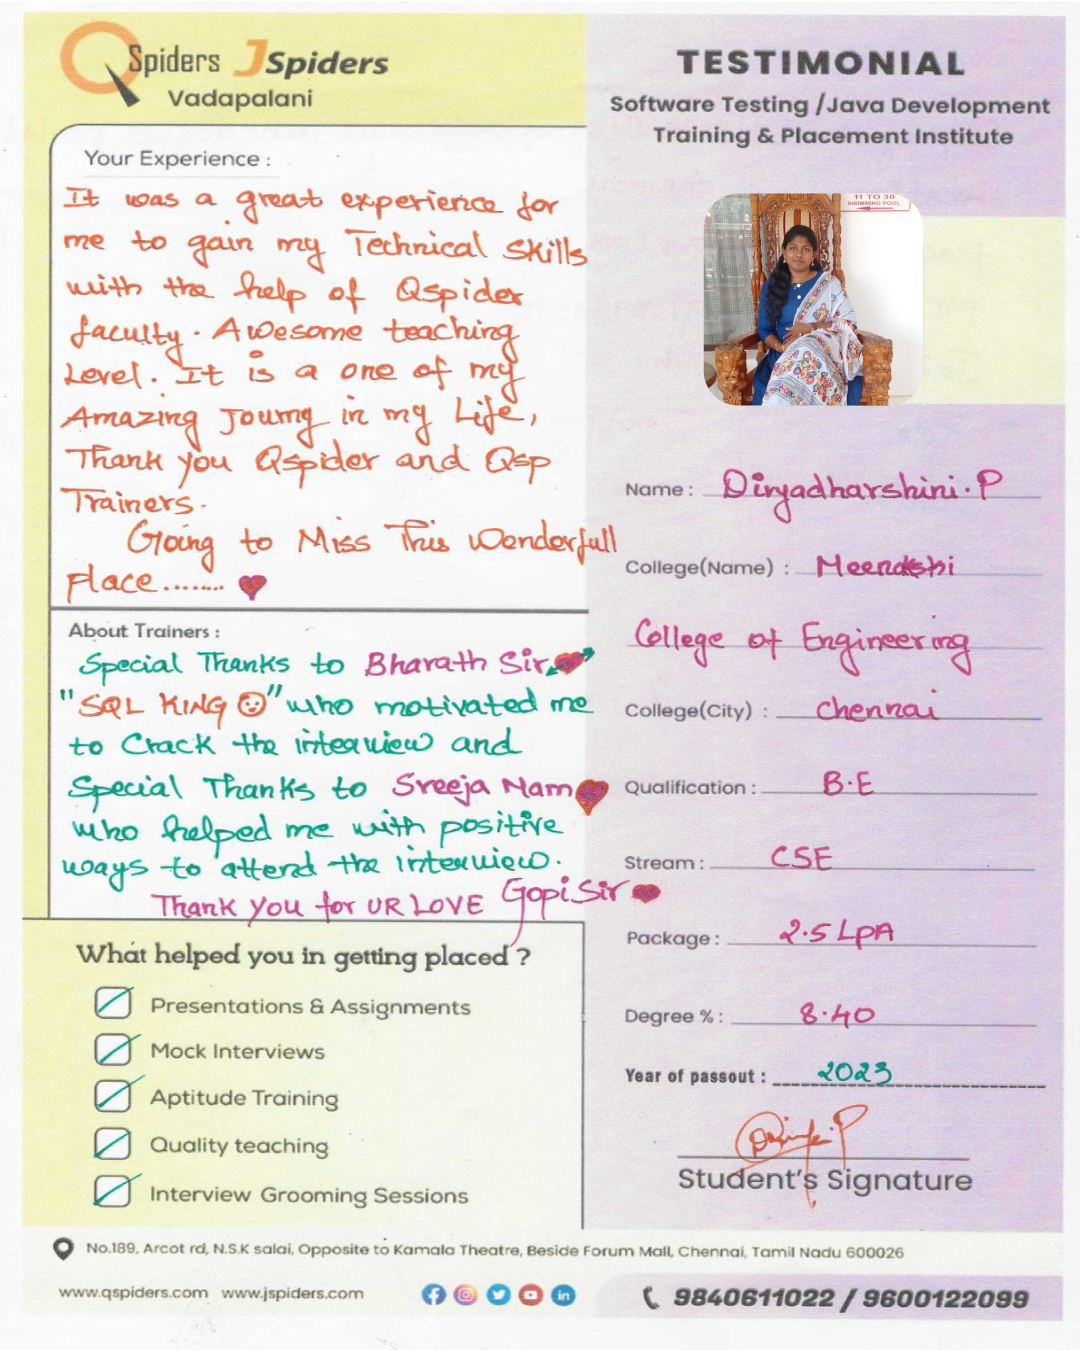 QSpiders JSpiders
Vadapalani
TESTIMONIAL
Software Testing /Java Development
Training & Placement Institute
Your Experience :
It was a great experience for
me to gain my Technical Skills
with the help of Qspider
faculty. Awesome teaching
Level. It is a one of my
Amazing Journy in my Life,
Thank you Qspider and Qsp
Trainers.
Going to Miss This Wonderfull
place........
About Trainers :
Special Thanks to Bharath Sir
"SQL KING" who motivated me
to Crack the interview and
Special Thanks to Sreeja Mam
who helped me with positive
ways to attend the interview.
Thank you for UR LOVE Gopi Sir
What helped you in getting placed ?
Presentations & Assignments
Mock Interviews
Aptitude Training
Quality teaching
Interview Grooming Sessions
11 TO 30
SWIMMING POOL
Name : Divyadharshini.P
College(Name) : Meenakshi
College of Engineering
College(City) : Chennai
Qualification : B.E
Stream : CSE
Package : 2.5 LPA
Degree % : 8.40
Year of passout : 2023
Student's Signature
No.189, Arcot rd, N.S.K salai, Opposite to Kamala Theatre, Beside Forum Mall, Chennai, Tamil Nadu 600026
www.qspiders.com www.jspiders.com
9840611022 / 9600122099